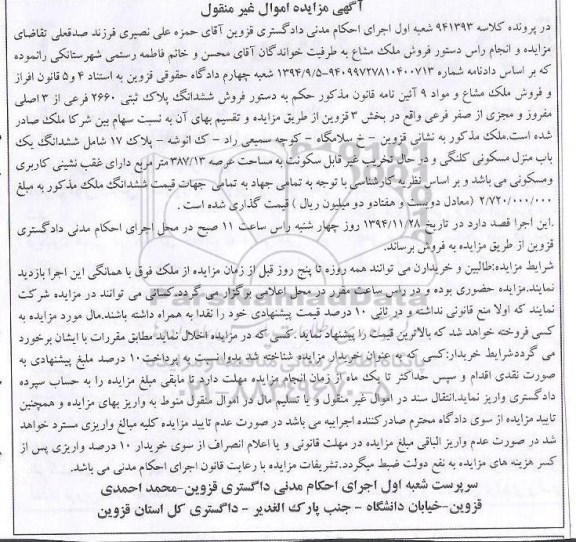 آگهی مزایده اموال غیر منقول
در پرونده کلاسه ۹۴۱۳۹۳ شعبه اول اجرای احکام مدنی دادگستری قزوین آقای حمزه علی نصیری فرزند صدقعلی تقاضای
مزایده و انجام راس دستور فروش ملک مشاع به طرفیت خواندگان آقای محسن و خانم فاطمه رستمی شهرستانکی رانموده
که بر اساس دادنامه شماره ۹۴۰۹۹۷۲۷۸۱۰۴۰۰۷۱۳-۱۳۹۴/۹/۵ شعبه چهارم دادگاه حقوقی قزوین به استناد ۴ و۵ قانون افراز
و فروش ملک مشاع و مواد ۹ آئین نامه قانون مذکور حکم به دستور فروش ششدانگ پلاک ثبتی ۲۶۶۰ فرعی از ۳ اصلی
مفروز و مجزی از صفر فرعی واقع در بخش ۳ قزوین از طریق مزایده و تقسیم بهای آن به نسبت سهام بین شرکا ملک صادر
شده است.ملک مذکور به نشانی قزوین - خ سلامگاه - کوچه سمیعی راد - ک انوشه - پلاک ۱۷ شامل ششدانگ یک
باب منزل مسکونی کلنگی و در حال تخریب غیر قابل سکونت به مساحت عرصه ۳۸۷/۱۳متر مربع دارای عقب نشینی کاربری
ومسکونی می باشد و بر اساس نظریه کارشناسی با توجه به تمامی جهاد به تمامی جهات قیمت ششدانگ ملک مذکور به مبلغ
۲/۷۲۰/۰۰۰/۰۰۰ (معادل دویست و هفتادو دو میلیون ریال ) قیمت گذاری شده است .
.این اجرا قصد دارد در تاریخ ۱۳۹۴/۱۱/۲۸ روز چهار شنبه راس ساعت ۱۱ صبح در محل اجرای احکام مدنی دادگستری
قزوین از طریق مزایده به فروش برساند.
شرایط مزایده:طالبین و خریداران می توانند همه روزه تا پنج روز قبل از زمان مزایده از ملک فوق با همانگی این اجرا بازدید
نمایند.مزایده حضوری بوده و در راس ساعت مقرر در محل اعلامی برگزار می گردد.کسانی می توانند در مزایده شرکت
نمایند که اولا منع قانونی نداشته و در ثانی ۱۰ درصد قیمت پیشنهادی خود را نقدا به همراه داشته باشند.مال مورد مزایده به
کسی فروخته خواهد شد که بالاترین قیمت را پیشنهاد نماید .کسی که در مزایده اخلال نماید مطابق مقررات با ایشان برخورد
می گرددشرایط خریدار:کسی که به عنوان خریدار مزایده شناخته شد بدوا نسبت به پرداخت ۱۰ درصد مبلغ پیشنهادی به
صورت نقدی اقدام و سپس حداکثر تا یک ماه از زمان انجام مزایده مهلت دارد تا مابقی مبلغ مزایده را به حساب سپرده
دادگستری واریز نماید.انتقال سند در اموال غیر منقول و یا تسلیم مال در اموال منقول منوط به واریز بهای مزایده و همچنین
تایید مزایده از سوی دادگاه محترم صادرکننده اجراییه می باشد در صورت عدم تایید مزایده کلیه مبالغ واریزی مسترد خواهد
شد در صورت عدم واریز الباقی مبلغ مزایده در مهلت قانونی و یا اعلام انصراف از سوی خریدار ۱۰ درصد واریزی پس از
کسر هزینه های مزایده به نفع دولت ضبط میگردد.تشریفات مزایده با رعایت قانون اجرای احکام مدنی می باشد.
سرپرست شعبه اول اجرای احکام مدنی داگستری قزوین-محمد احمدی
قزوین-خیابان دانشگاه - جنب پارک الغدیر - داگستری کل استان قزوین